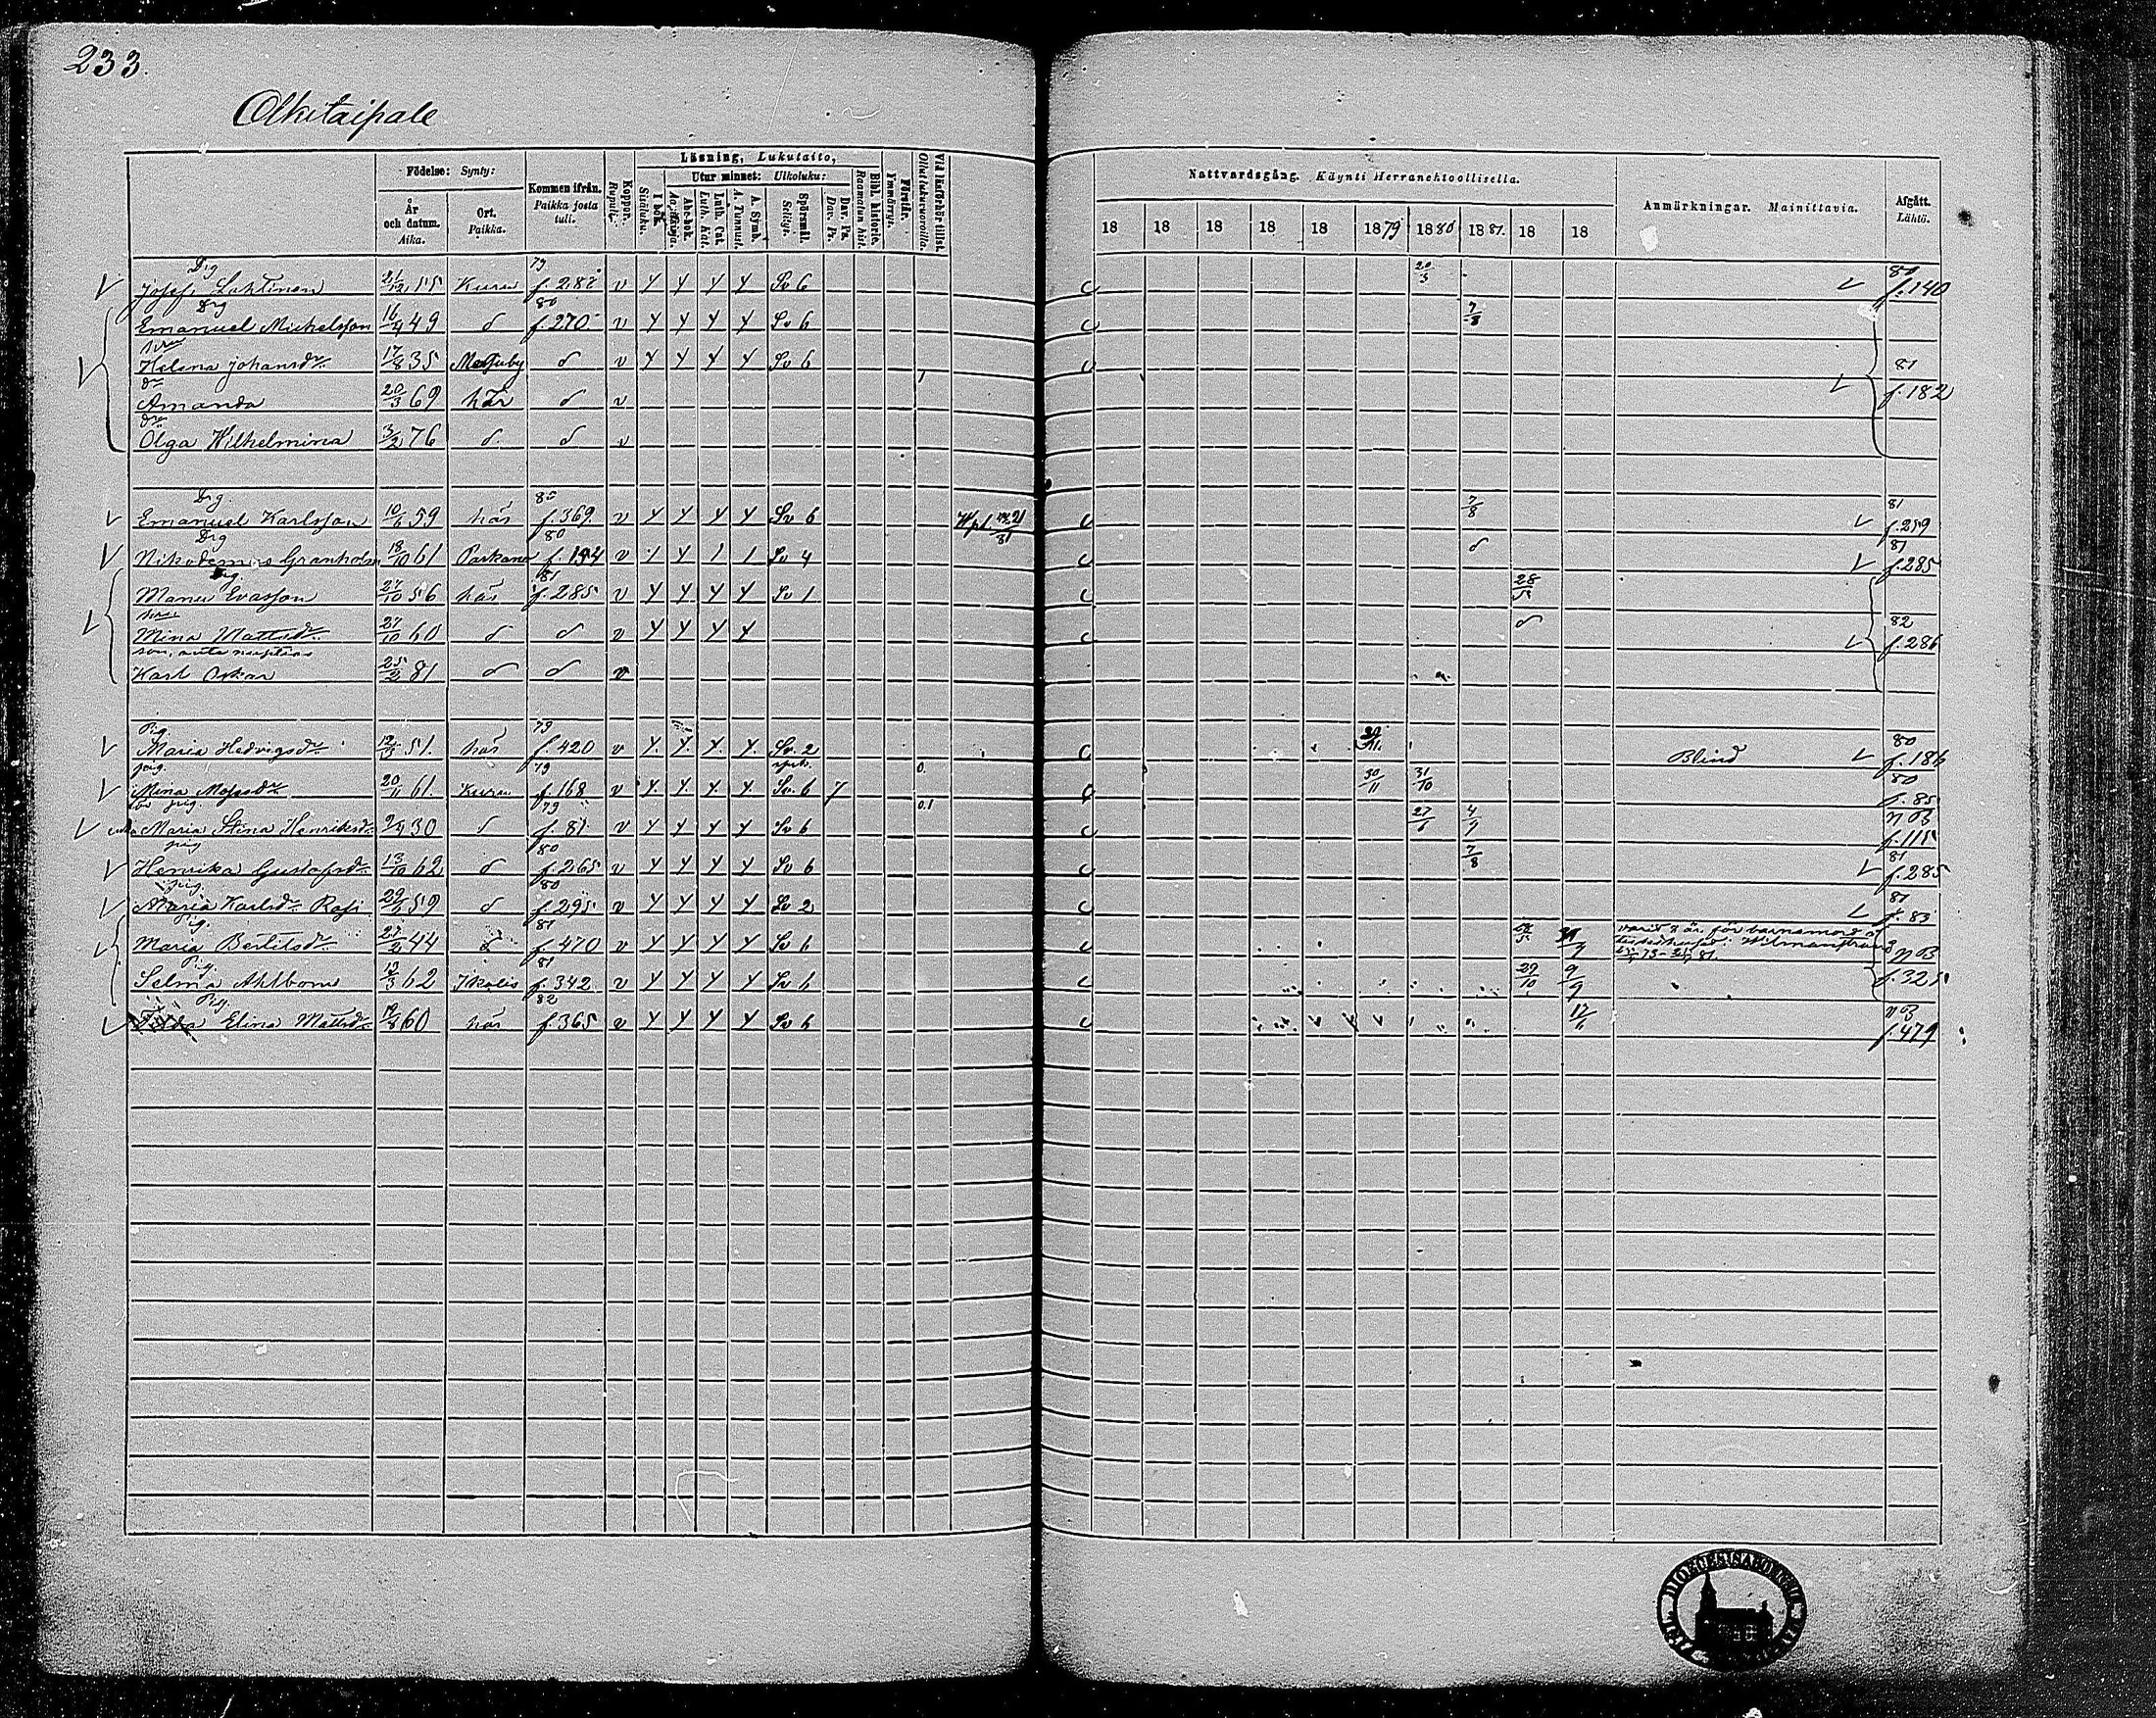 233.
Olkitaipale
Födelse: Synty:
År och datum. Aika.
Ort. Paikka.
Kommen ifrån. Paikka josta tuli.
Koppor. Rupuli.
Läsning, Lukutaito,
I bok. Sisäluku.
Utur minnet: Ulkoluku:
Abc-bok. Aapiskirja.
Luth. Cat. Luth. Kat.
A. Symb. A. Tunnust.
Spörsmål. Selitys.
Dav. Ps. Dav. Ps.
Bibl. historie. Raamatun hist.
Förstår. Ymmärrys.
Nattvardsgång. Käynti Herranehtoollisella.
18 18 18 18 18 1879 1880 1881. 18 18
Anmärkningar. Mainittavia.
Afgått. Lähtö.
Drg 79 20/3 80
Josef Lehtinen 21/12 55 Kuru f. 282 v Y Y Y Y Sv 6 c f. 140
Drg 80
Emanuel Michelsson 16/4 49 d f. 270 v Y Y Y Y Sv 6 c 7/8
Helena Johansdr 17/8 35 d v Y Y Y Y Sv 6 c 81
dr
Amanda 20/3 69 här d v f. 182
dr
Olga Wilhelmina 3/2 76 d d v
Drg. 80 7/8 81
Emanuel Karlsson 10/6 59 här f. 369. v Y Y Y Y Sv 6 c f. 259
Drg 80 81
Nikodemus Granholm 18/10 61 Parkano f. 194 v Y Sv 4 c d f. 285
Drg. 81 28/5
Manu Evasson 27/10 56 här f. 285 v Y Y Y Y Sv 1 c
Mina Mattsdr 27/10 60 d d v Y Y Y Y c d 82
son, ante nuptias f. 286
Karl Oskar 25/2 81 d d v
Pig. 79 80
Maria Hedvigsdr 51. här f. 420 v Y. Y. Y. Y. Sv. 2 c Blind f. 186
pig. 79 0. 30/11 31/10 80
Mina 20/11 61. Kuru f. 168 v Y. Y. Y. Y. Sv. 6 7 f. 85
pig. 79 0.1 27/6 4/9 n B
Maria Stina Henriksdr 2/4 30 d f. 81 v Y Y Y Y Sv 6 c f. 115
pig 80 7/8 81
Henrika Gustafsdr 13/10 62 d f. 265 v Y Y Y Y Sv 6 c f. 285
pig. 80 81
Maria Karlsdr Rasi 59 d f. 295 v Y Y Y Y Sv 2 c f. 83
Pig. 81 varit 8 år för barnamord å
Maria Bertilsdr 27/2 44 d f. 470 v Y Y Y Y Sv 6 Wilmanstrand n B
Pig. 81
Selma Ahlbom 62 Ikalis f. 342 v Y Y Y Y Sv 6 c 29/10 9/9 f. 325
Pig. 82 n B
Elina Mattsdr 60 här f. 365 v Y Y Y Y Sv 6 c f. 479